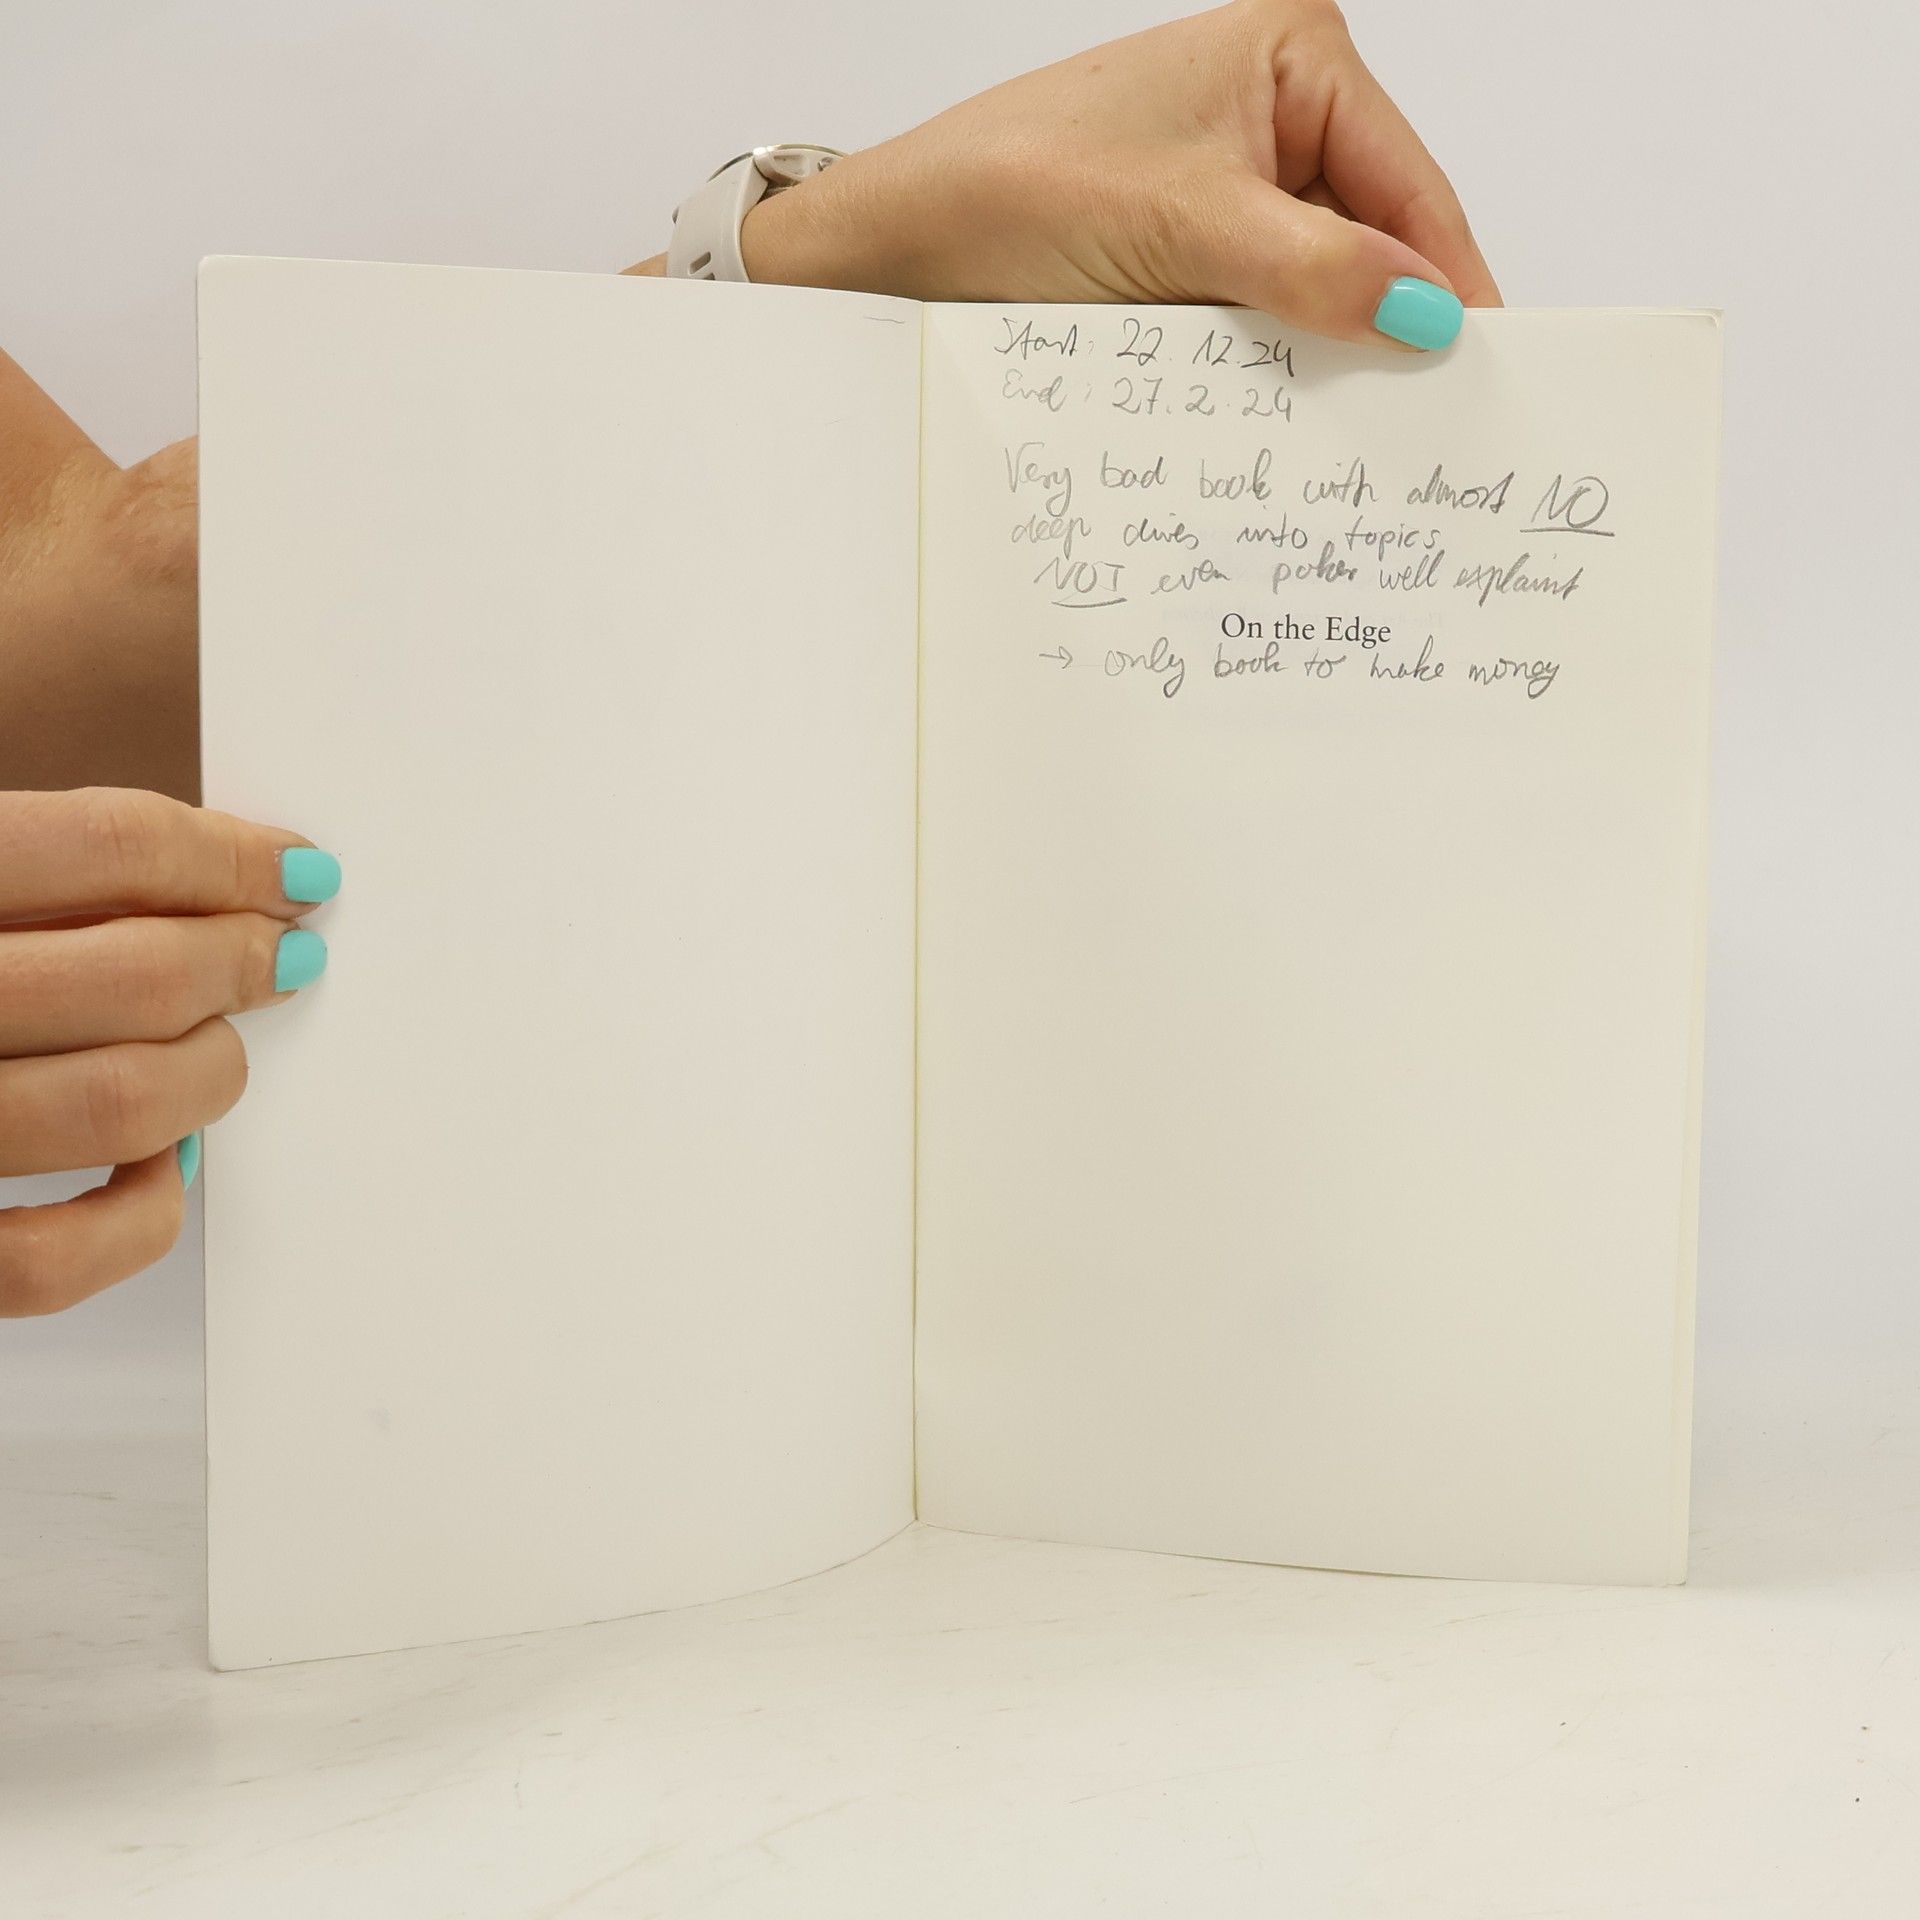 Start: 22. 12. 24
End: 27. 2. 24
Very bad book with almost NO
deep dives into topics
NOT even poker well explaint
On the Edge
→ only book to make money